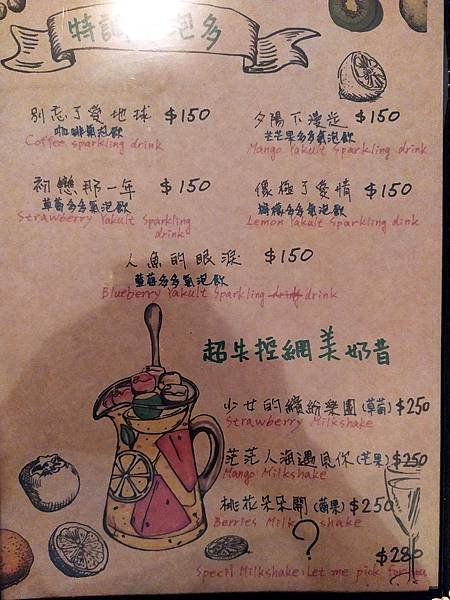 特調 泡多
別忘了愛地球 $150
咖啡氣泡飲
Coffee sparkling drink
夕陽下漫步 $150
芒芒果多多氣泡飲
Mango Yakult Sparkling drink
初戀那一年 $150
草莓多多氣泡飲
Strawberry Yakult Sparkling
drink
像極了愛情 $150
檸檬多多氣泡飲
Lemon Yakult Sparkling
dink
人魚的眼淚 $150
藍莓多多氣泡飲
Blueberry Yakult Sparkling drink
超失控網美奶昔
少女的繽紛樂園(草莓) $250
Strawberry Milkshake
茫茫人海遇見你(芒果) $250
Mango Milkshake
桃花朵朵開(莓果) $250
Berries Milkshake
? $280
Specil Milkshake:Let me pick for you